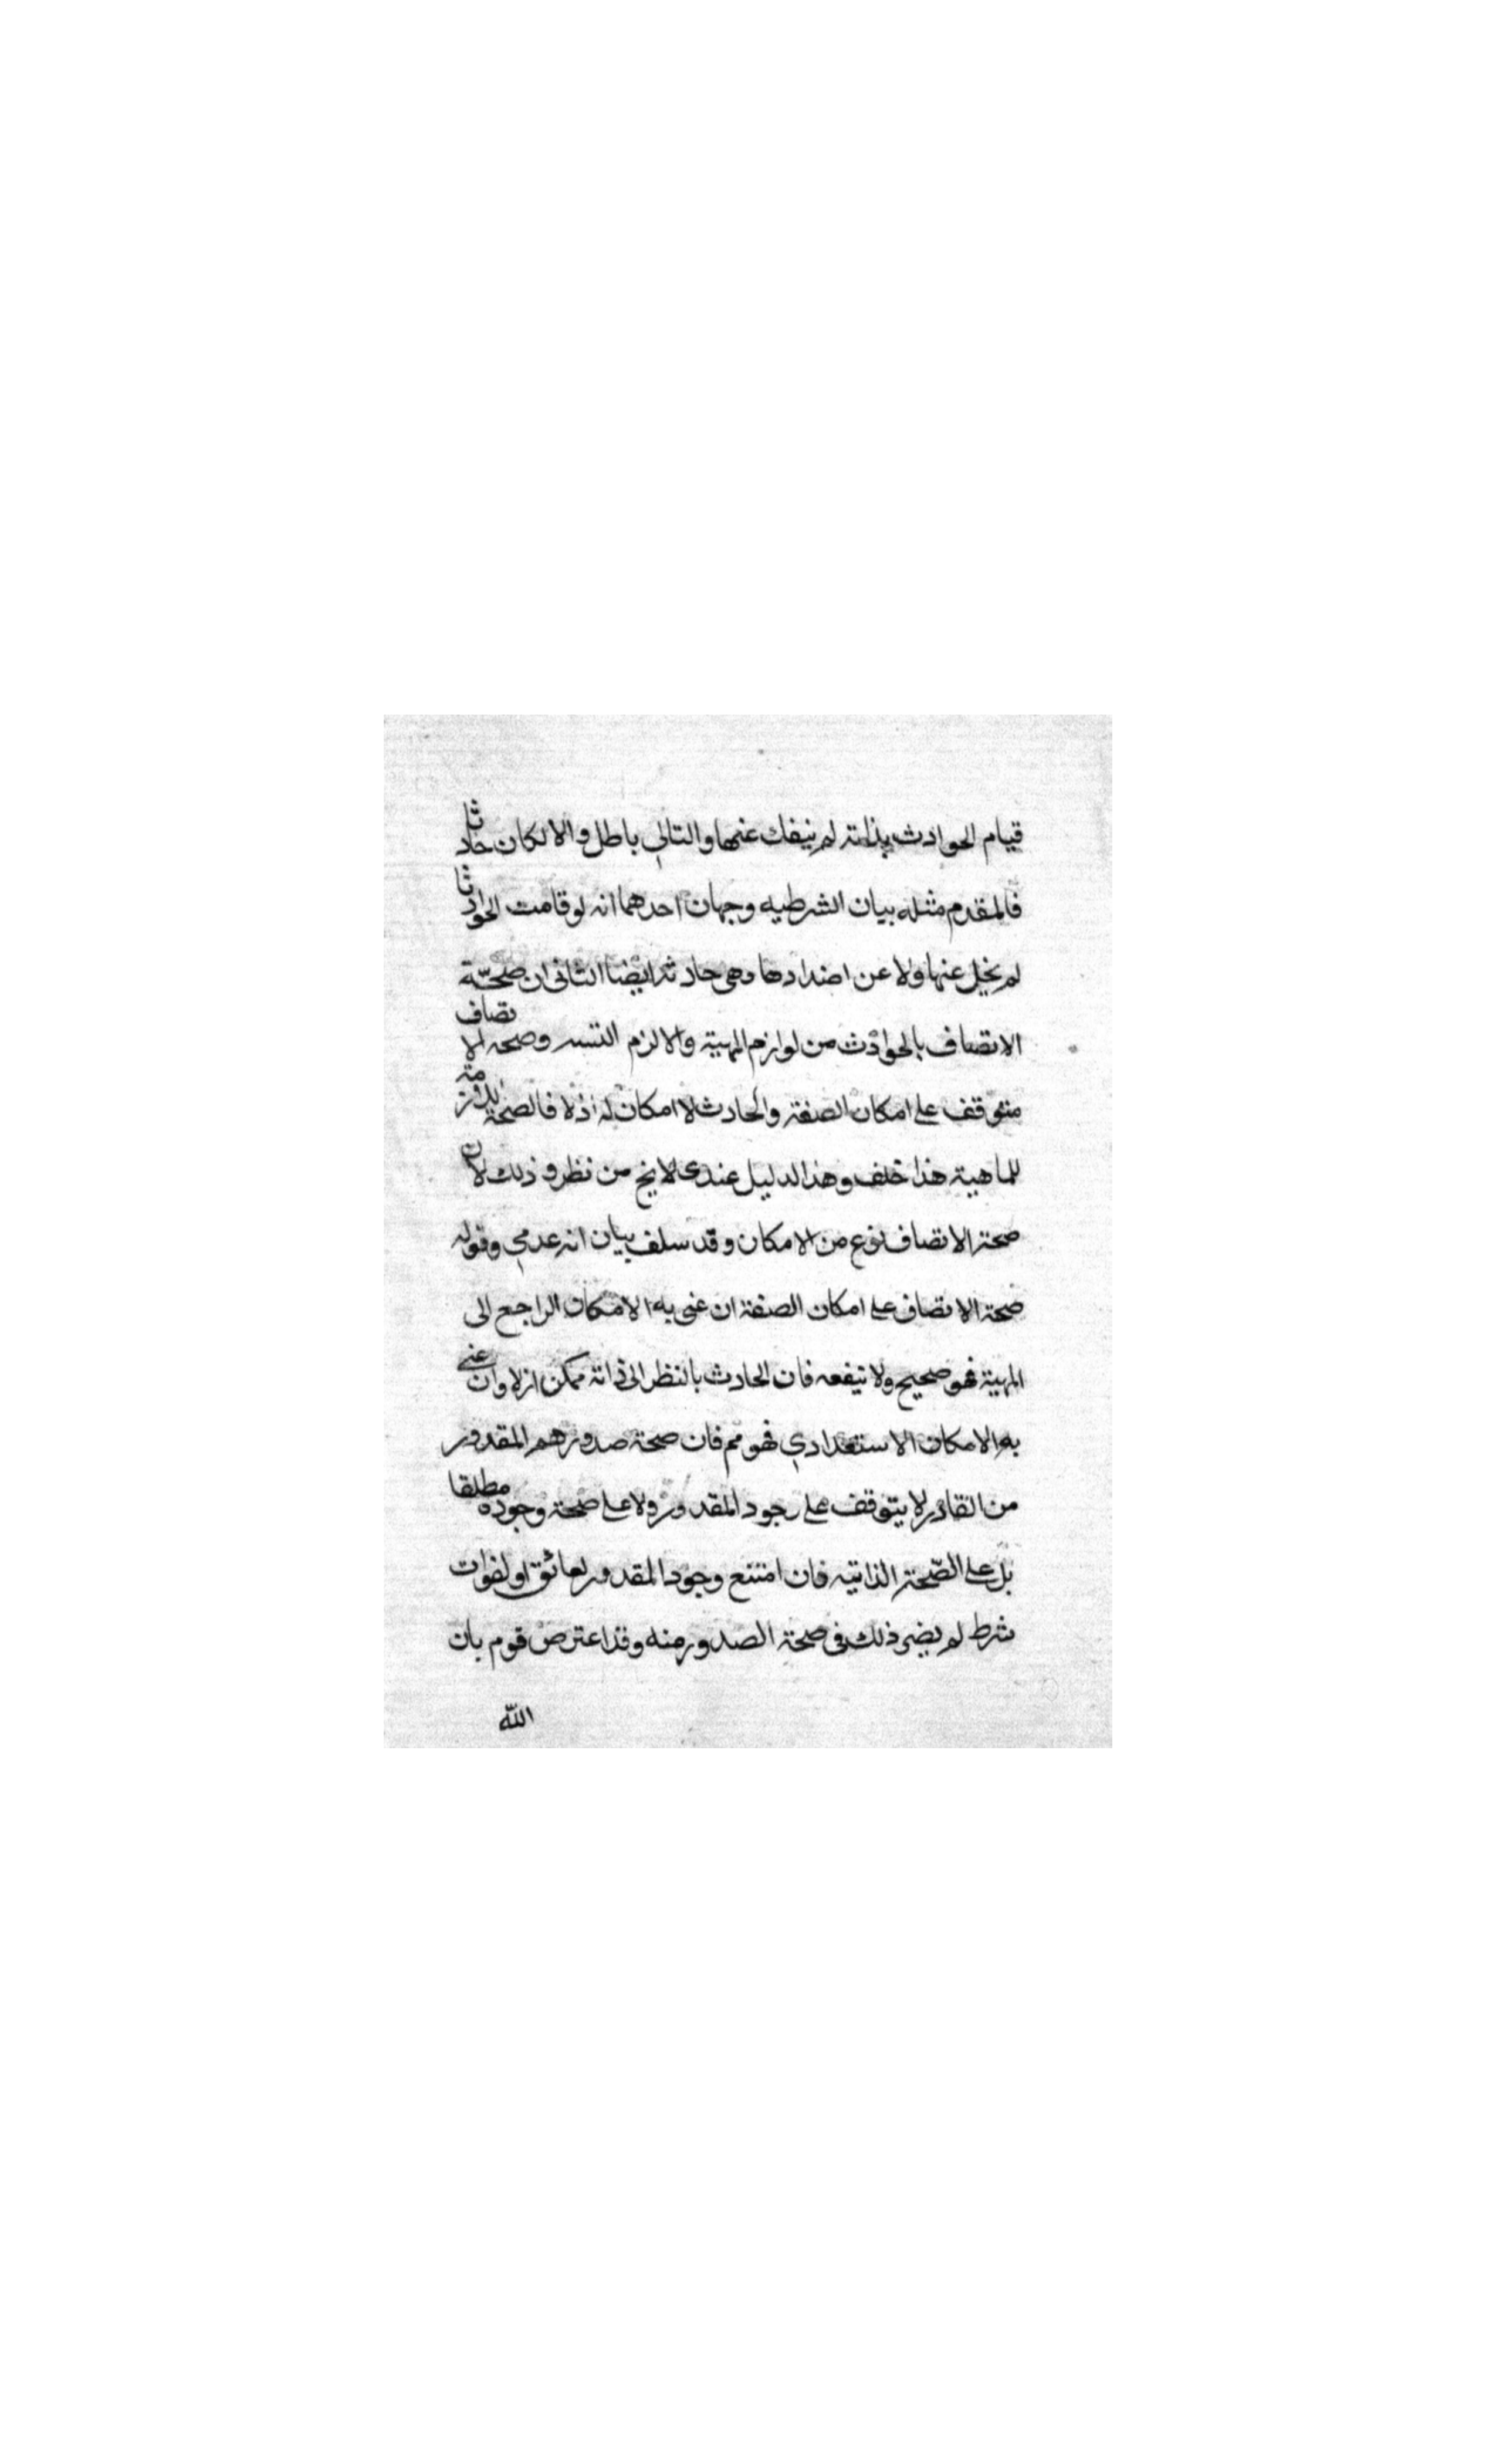 قيام الحوادث بذاته لم ينفك عنها والتالي باطل والا لكان حادثا
فالمقدم مثله بيان الشرطيه وجهان احدهما انه لو قامت الحوادث
لم يخل عنها ولا عن اضدادها وهي حادثه ايضا الثاني ان صحّة
الاتصاف بالحوادث من لوازم المهية والا لزم التسـ وصحه الاتصاف
متوقف على امكان الصفة والحادث لا امكان له اذلا فالصحة اللازمة
للماهية هذا خلف وهذا الدليل عندى لا يخ من نظر و ذلك لان
صحة الاتصاف نوع من الامكان وقد سلف بيان انه عدمي وقوله
صحة الاتصاف على امكان الصفة ان عنى به الامكان الراجع الى
المهية فهو صحيح ولا ينفعه فان الحادث بالنظر الى ذاته ممكن ازلا وان عنى
به الامكان الاستعدادي فهو مم فان صحة صدور المقدور
من القادر لا يتوقف على وجود المقدور ولا على صحة وجوده مطلقا
بل على الصّحة الذاتيه فان امتنع وجود المقدور لعائق او لفوات
شرط لم يضر ذلك في صحة الصدور منه وقد اعترض قوم بان
اللّه